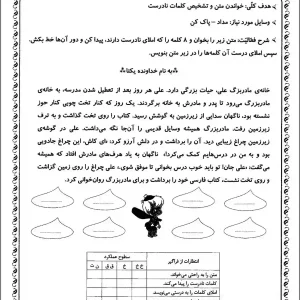 هدف کلّی: خواندن متن و تشخیص کلمات نادرست
وسایل مورد نیاز: مداد - پاک کن
شرح فعّالیّت: متن زیر را بخوان و ۸ کلمه را که املای نادرست دارند، پیدا کن و دور آن‌ها خط بکش.
سپس املای درست آن کلمه‌ها را در زیر متن بنویس.
به نام خداونده یکتا
خانه‌ی مادربزگ علی، حیات بزرگی دارد. علی هر روز بعد از تعطیل شدن مدرسه، به خانه‌ی
مادربزرگ می‌رود تا پدر و مادرش به خانه برگردند. یک روز که کنار تخت چوبی کنار حوز
نشسته بود، ناگهان سدایی از زیرزمین به گوشش رسید. کتاب را روی تخت گذاشت و به ترف
زیرزمین رفت. مادربزرگ همیشه وسایل قدیمی را آن‌جا نگه می‌داشت. علی در گوشه‌ی
زیرزمین چراغ زیبایی دید. آن را برداشت و در دلش آرزو کرد: «ای کاش، این چراغ جادویی
بود و به من در درس‌هایم کمک می‌کرد!» ناگهان به یاد هرف‌های مادرش افتاد که همیشه
می‌گفت: «علی جان! تو باید خوب درس بخوانی تا موفق شوی.» علی چراغ را روی زمین گزاشت
و روی تخت نشست، کتاب فارسی خود را برداشت و برای مادربزرگ روان‌خوانی کرد.
انتظارات از فراگیر
سطوح عملکرد
خ خ
خ
ق ق
ن ت
متن را به راحتی می‌خواند.
کلمات نادرست را پیدا می‌کند.
املای کلمات را به درستی می‌نویسد.